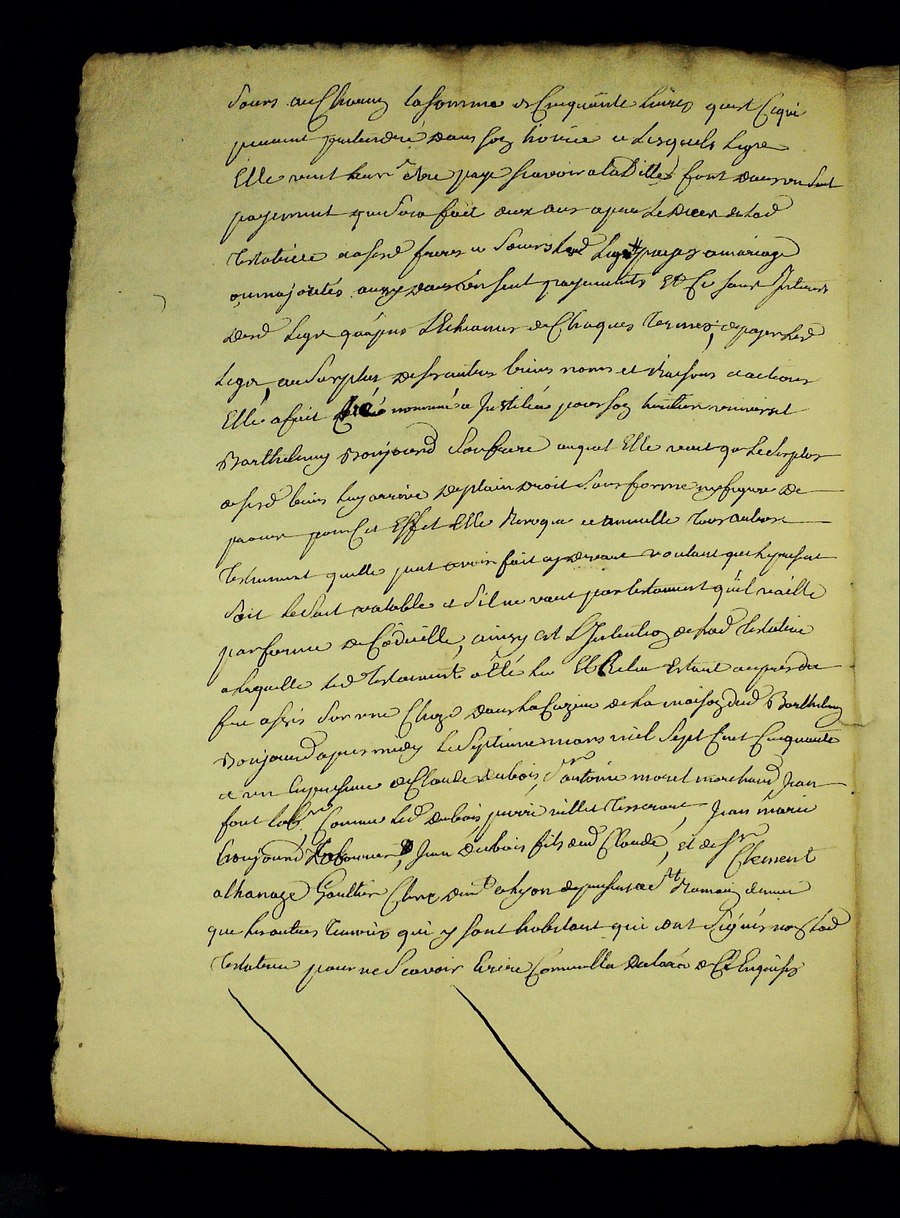 sœurs a un Chacun la somme de Cinquante livres quest Ce qui
peuvent pretendre dans son hoirie et lesquels legs
Elle veut leur etre paye scavoir a lad fille font dans un seul
payement que sera fait deux ans apres le deces de lad
testatrice a sesd freres et sœurs led legs a mariage
ou majorités aussy dans un seul payement Et Ce sans Interests
desd legs qu'apres l'Echeance de Chaques termes,
legs, au surplus de ses autres biens noms et Raisons et actions
Elle a fait Créé nommé et Institué pour son heritier universel
Barthelemy Bonjourd son frere auquel Elle veut que le surplus
de sesd biens luy arrive de plain droit sans forme ny figure de
proces pour Cet Effet Elle Revoque et annulle tous autres
testament quelle peut avoir fait cy devant voulant que le present
soit le seul valable et s'il ne vaut par testament qu'il vaille
par forme de Codicille, ainsy est l'Intention de lad testatrice
a laquelle led testament a été lu Et Relu Estant aupres du
feu assis sur une Chaize dans la Cuizine de la maison dud Barthelemy
Bonjourd apres midy le septieme mars mil sept Cent Cinquante
et un En presence de Claude Dubois, Sr antoine moret marchand Jean
font labr, Comme led Dubois pierre tisserant, Jean marie
bonjourd Laboureur, Jean Dubois fils dud Claude, et de Sr Clement
athanaze Gaultier Clerc demt a lyon de present a St Romain de mesme
que les autres temoins qui y sont habitant qui ont signés non lad
testatrice pour ne scavoir Ecrire Comme Elle a declaré de Ce Enquise